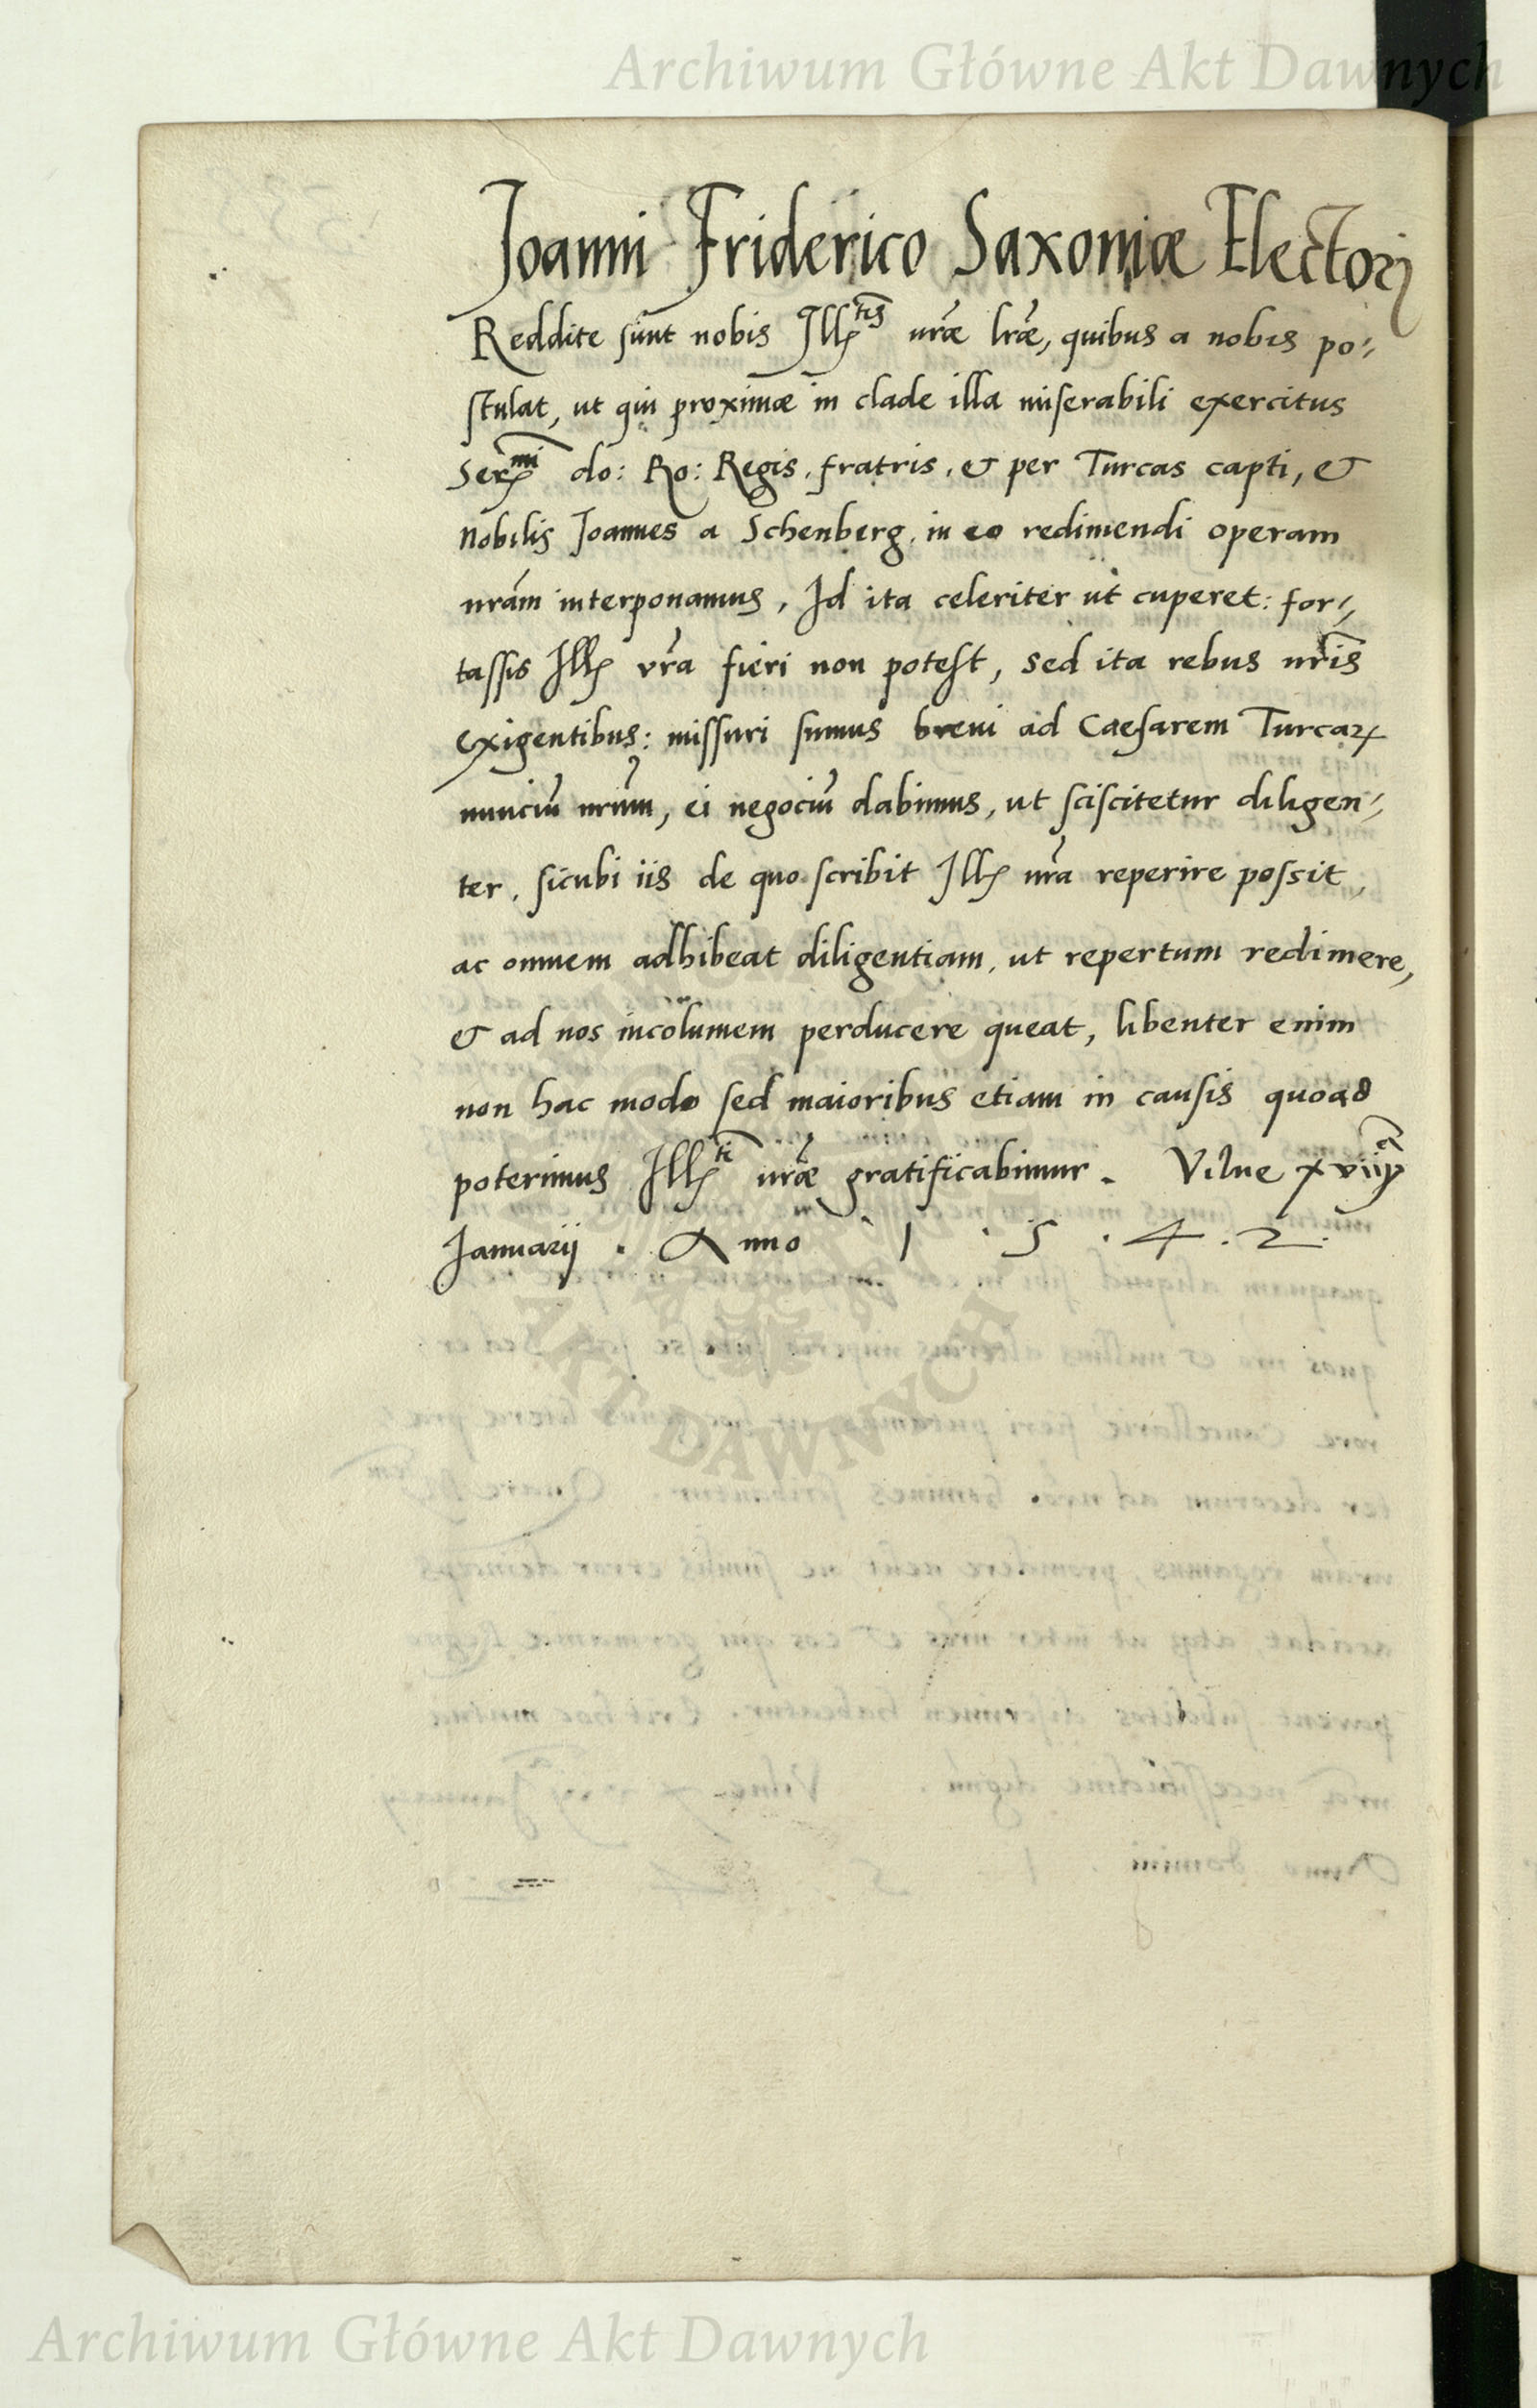 Archiwum Główne Akt Dawnych
Joanni Friderico Saxoniæ Electorj
Reddite sunt nobis Ill^tis vr̃æ lr̃æ, quibus a nobis po⸗
stulat, ut qui proximæ in clade illa miserabili exercitus
Ser^mi do: Ro: Regis, fratris, & per Turcas capti, &
nobilis Joannes a Schenberg, in eo redimendi operam
nr̃am interponamus, Id ita celeriter ut cuperet: for⸗
tassis Ill vr̃a fieri non potest, sed ita rebus nr̃is
exigentibus: missuri sumus brevi ad Caesarem Turcaꝝ
nunciũ nr̃um, ei negociũ dabimus, ut sciscitetur diligen⸗
ter, sicubi iis de quo scribit Ill vr̃a reperire possit,
ac omnem adhibeat diligentiam, ut repertum redimere,
& ad nos incolumem perducere queat, libenter enim
non hac modo sed maioribus etiam in causis quoad
poterimus Ill^ti vr̃æ gratificabimur. Vilne xviij
Januarij . Anno 1 . 5 . 4 . 2 .
AKT DAWNYCH
Archiwum Główne Akt Dawnych